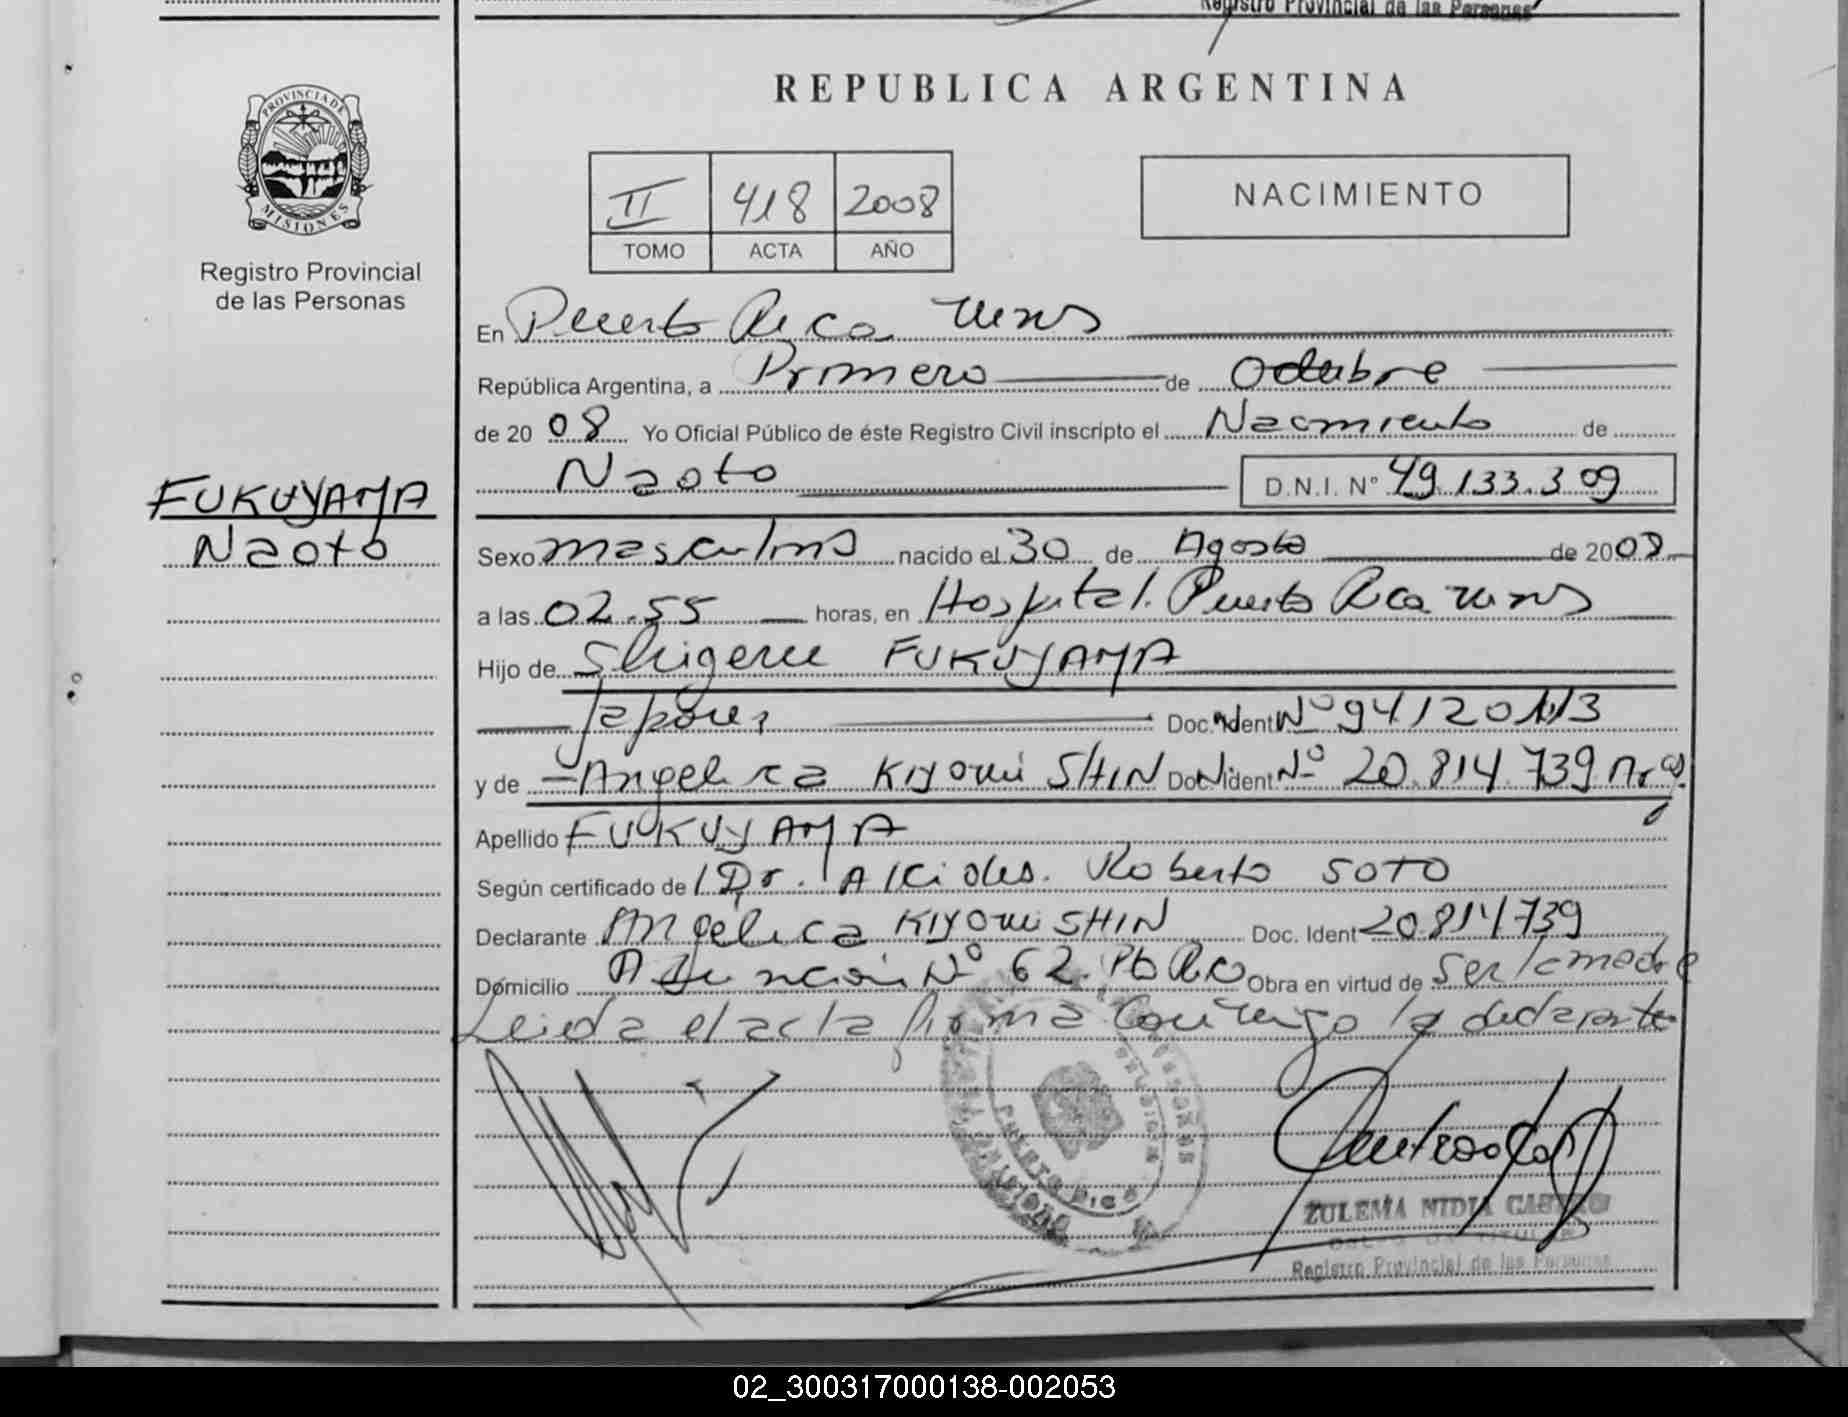 Registro Provincial de las Personas
REPUBLICA ARGENTINA
PROVINCIA DE
MISIONES
Registro Provincial
de las Personas
II 418 2008
TOMO ACTA AÑO
NACIMIENTO
En Puerto Rico Mnes
República Argentina, a Primero de Octubre
de 20 08 Yo Oficial Público de éste Registro Civil inscripto el Nacimiento de
Naoto D.N.I. N° 49.133.309
FUKUYAMA
Naoto
Sexo masculino nacido el 30 de Agosto de 2008
a las 02.55 horas, en Hospital. Puerto Rico Mnes
Hijo de Shigeru FUKUYAMA
Japones Doc. Ident N° 94120113
y de Angelica KIYOMI SHIN Doc. Ident N° 20.814.739 Arg.
Apellido FUKUYAMA
Según certificado de Dr. Alcides. Roberto SOTO
Declarante Angélica KIYOMI SHIN Doc. Ident 20.814739
Domicilio Asunción N° 62. Pto Rico Obra en virtud de ser la madre
Leida el acta firma conmigo la declarante
PUERTO RICO
ZULEMA NIDIA CASTRO
TITULAR
Registro Provincial de las Personas
02_300317000138-002053